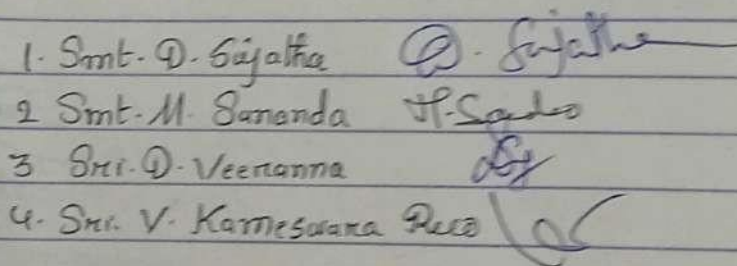 1. Smt. D. Sujatha D. Sujatha
2 Smt. M. Sunanda
3 Sri. D. Veeranna
4. Sri. V. Kameswara Rao